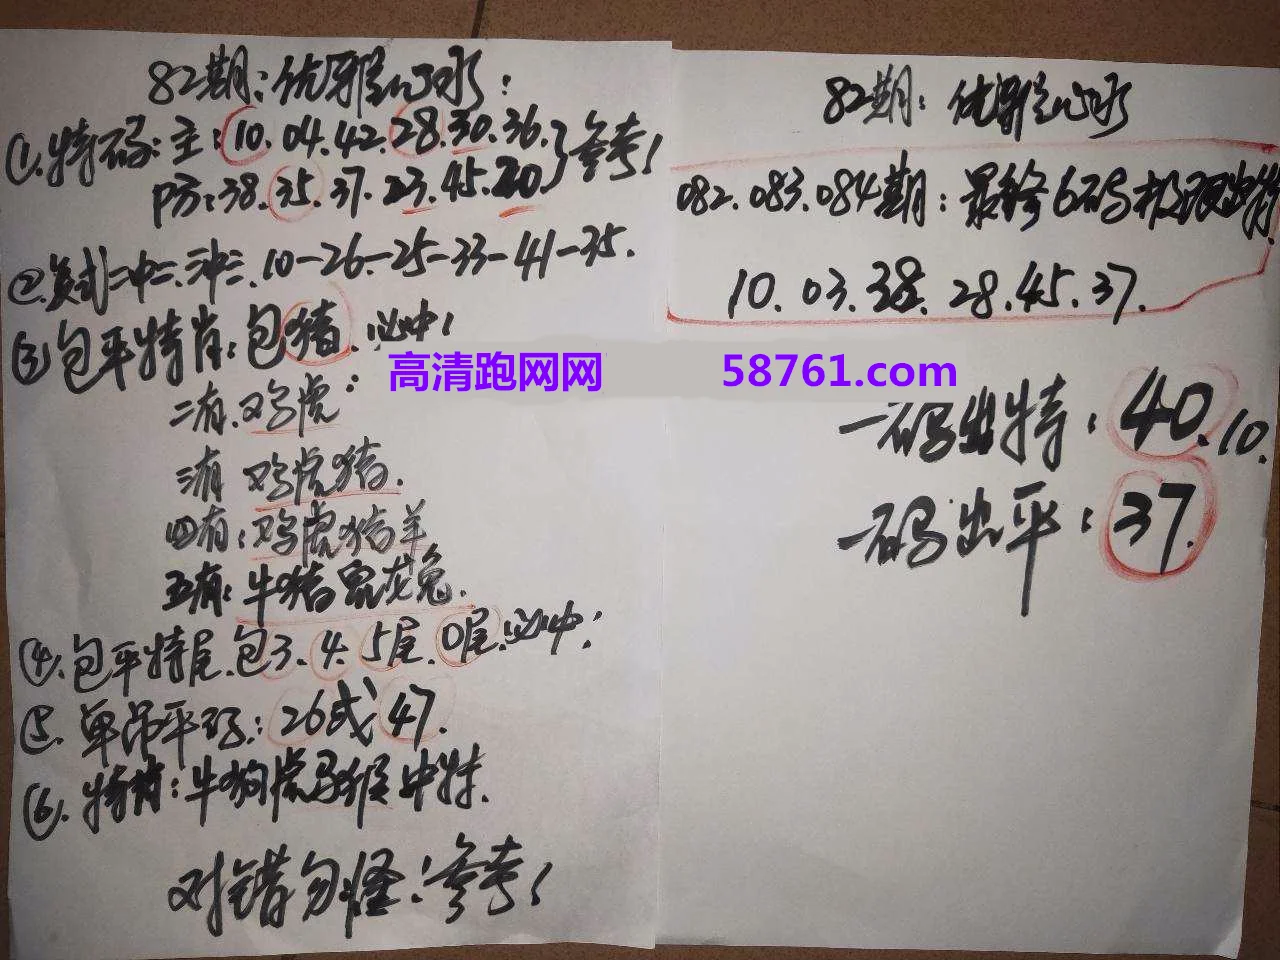 82期:优雅心水:
①.特码:主:10.04.42.28.30.36.}参考!
防:38.35.37.23.45.20
②.复式三中二.三中三.10-26-25-33-41-35.
③包平特肖:包猪.必中!
二有.鸡虎:
三有 鸡虎猪.
四有:鸡虎猪羊
五有:牛猪鼠龙兔.
④.包平特尾.包3.4.5尾.0尾.必中!
⑤.单吊平码:26或47.
⑥.特肖:牛狗虎马猴中特.
对错勿怪!参考!
82期:优雅心水
082.083.084期:最终6码极限出特
10.03.38.28.45.37.
高清跑网网 58761.com
一码出特:40.10.
一码出平:37.